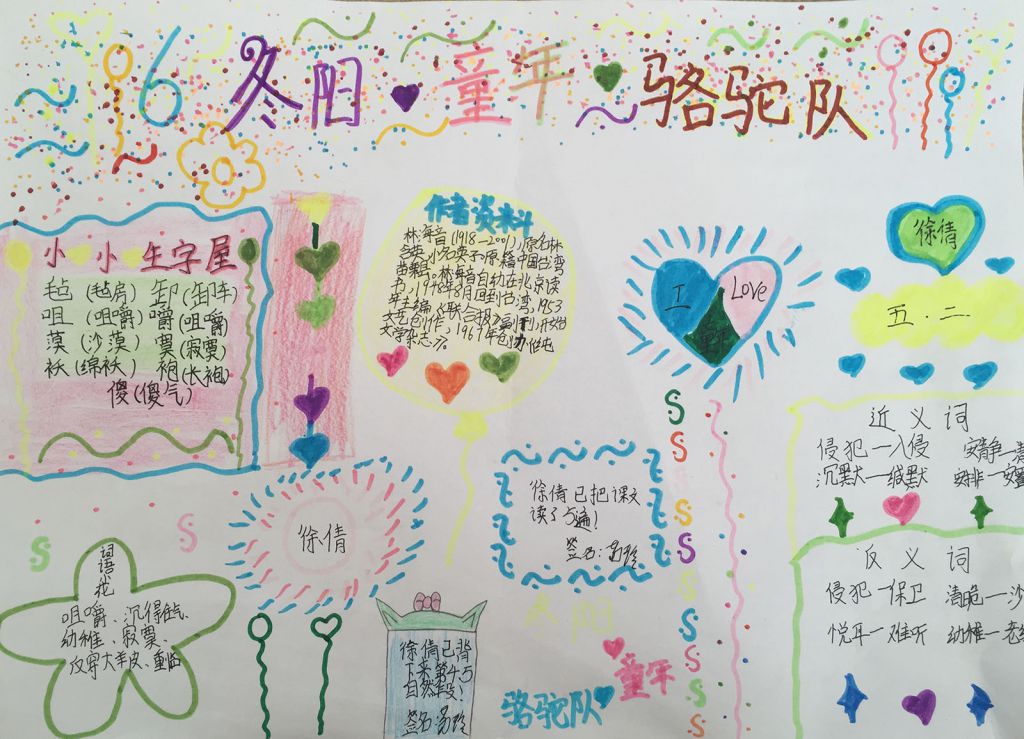 6 冬阳 童年 骆驼队
小小生字屋
毡(毡房) 卸(卸车)
咀(咀嚼) 嚼(咀嚼)
漠(沙漠) 寞(寂寞)
袄(绵袄) 袍(长袍)
傻(傻气)
作者资料
林海音(1918-2001),原名林
含英,小名英子,原籍中国台湾
苗栗县,林海音自幼在北京读
书,1948年8月回到台湾,1953
年主编《联合报》副刊,开始
文艺创作,1967年创办《纯
文学杂志》。
I Love
徐倩
五.二
近义词
侵犯—入侵 安静—
沉默—缄默 安排—安
反义词
侵犯—保卫 清脆—沙
悦耳—难听 幼稚—老
徐倩
徐倩已把课文
读了5遍!
签名:
词语花
咀嚼、沉得住气、
幼稚、寂寞、
反穿大羊皮、重临
徐倩已背
下来第4、5
自然段!
签名:
童年
骆驼队